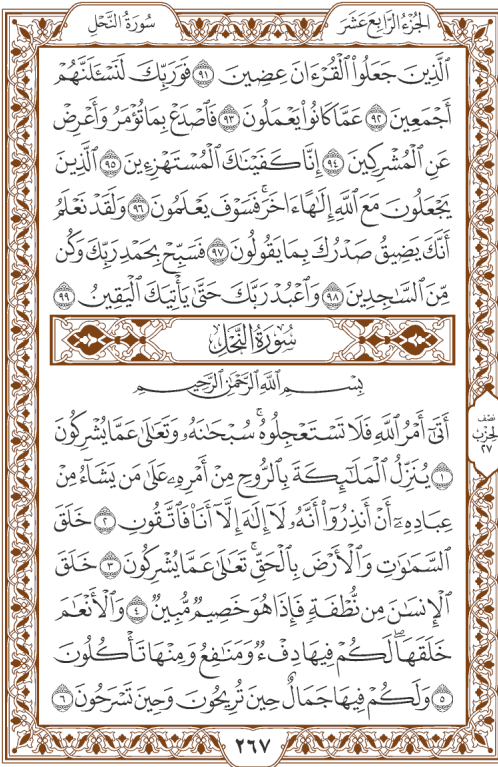 سُورَةُ النَّحْلِ الجُزْءُ الرَّابِعَ عَشَرَ
الَّذِينَ جَعَلُوا۟ الْقُرْءَانَ عِضِينَ ٩١ فَوَرَبِّكَ لَنَسْـَٔلَنَّهُمْ
أَجْمَعِينَ ٩٢ عَمَّا كَانُوا۟ يَعْمَلُونَ ٩٣ فَاصْدَعْ بِمَا تُؤْمَرُ وَأَعْرِضْ
عَنِ الْمُشْرِكِينَ ٩٤ إِنَّا كَفَيْنَٰكَ الْمُسْتَهْزِءِينَ ٩٥ الَّذِينَ
يَجْعَلُونَ مَعَ اللَّهِ إِلَٰهًا ءَاخَرَ ۚ فَسَوْفَ يَعْلَمُونَ ٩٦ وَلَقَدْ نَعْلَمُ
أَنَّكَ يَضِيقُ صَدْرُكَ بِمَا يَقُولُونَ ٩٧ فَسَبِّحْ بِحَمْدِ رَبِّكَ وَكُن
مِّنَ السَّٰجِدِينَ ٩٨ وَاعْبُدْ رَبَّكَ حَتَّىٰ يَأْتِيَكَ الْيَقِينُ ٩٩
سُورَةُ النَّحْلِ
بِسْمِ اللَّهِ الرَّحْمَٰنِ الرَّحِيمِ
أَتَىٰٓ أَمْرُ اللَّهِ فَلَا تَسْتَعْجِلُوهُ ۚ سُبْحَٰنَهُۥ وَتَعَٰلَىٰ عَمَّا يُشْرِكُونَ
١ يُنَزِّلُ الْمَلَٰٓئِكَةَ بِالرُّوحِ مِنْ أَمْرِهِۦ عَلَىٰ مَن يَشَآءُ مِنْ
عِبَادِهِۦٓ أَنْ أَنذِرُوٓا۟ أَنَّهُۥ لَآ إِلَٰهَ إِلَّآ أَنَا۠ فَاتَّقُونِ ٢ خَلَقَ
السَّمَٰوَٰتِ وَالْأَرْضَ بِالْحَقِّ ۚ تَعَٰلَىٰ عَمَّا يُشْرِكُونَ ٣ خَلَقَ
الْإِنسَٰنَ مِن نُّطْفَةٍ فَإِذَا هُوَ خَصِيمٌ مُّبِينٌ ٤ وَالْأَنْعَٰمَ
خَلَقَهَا ۗ لَكُمْ فِيهَا دِفْءٌ وَمَنَٰفِعُ وَمِنْهَا تَأْكُلُونَ
٥ وَلَكُمْ فِيهَا جَمَالٌ حِينَ تُرِيحُونَ وَحِينَ تَسْرَحُونَ ٦
نصف
الحزب
٢٧
٢٦٧